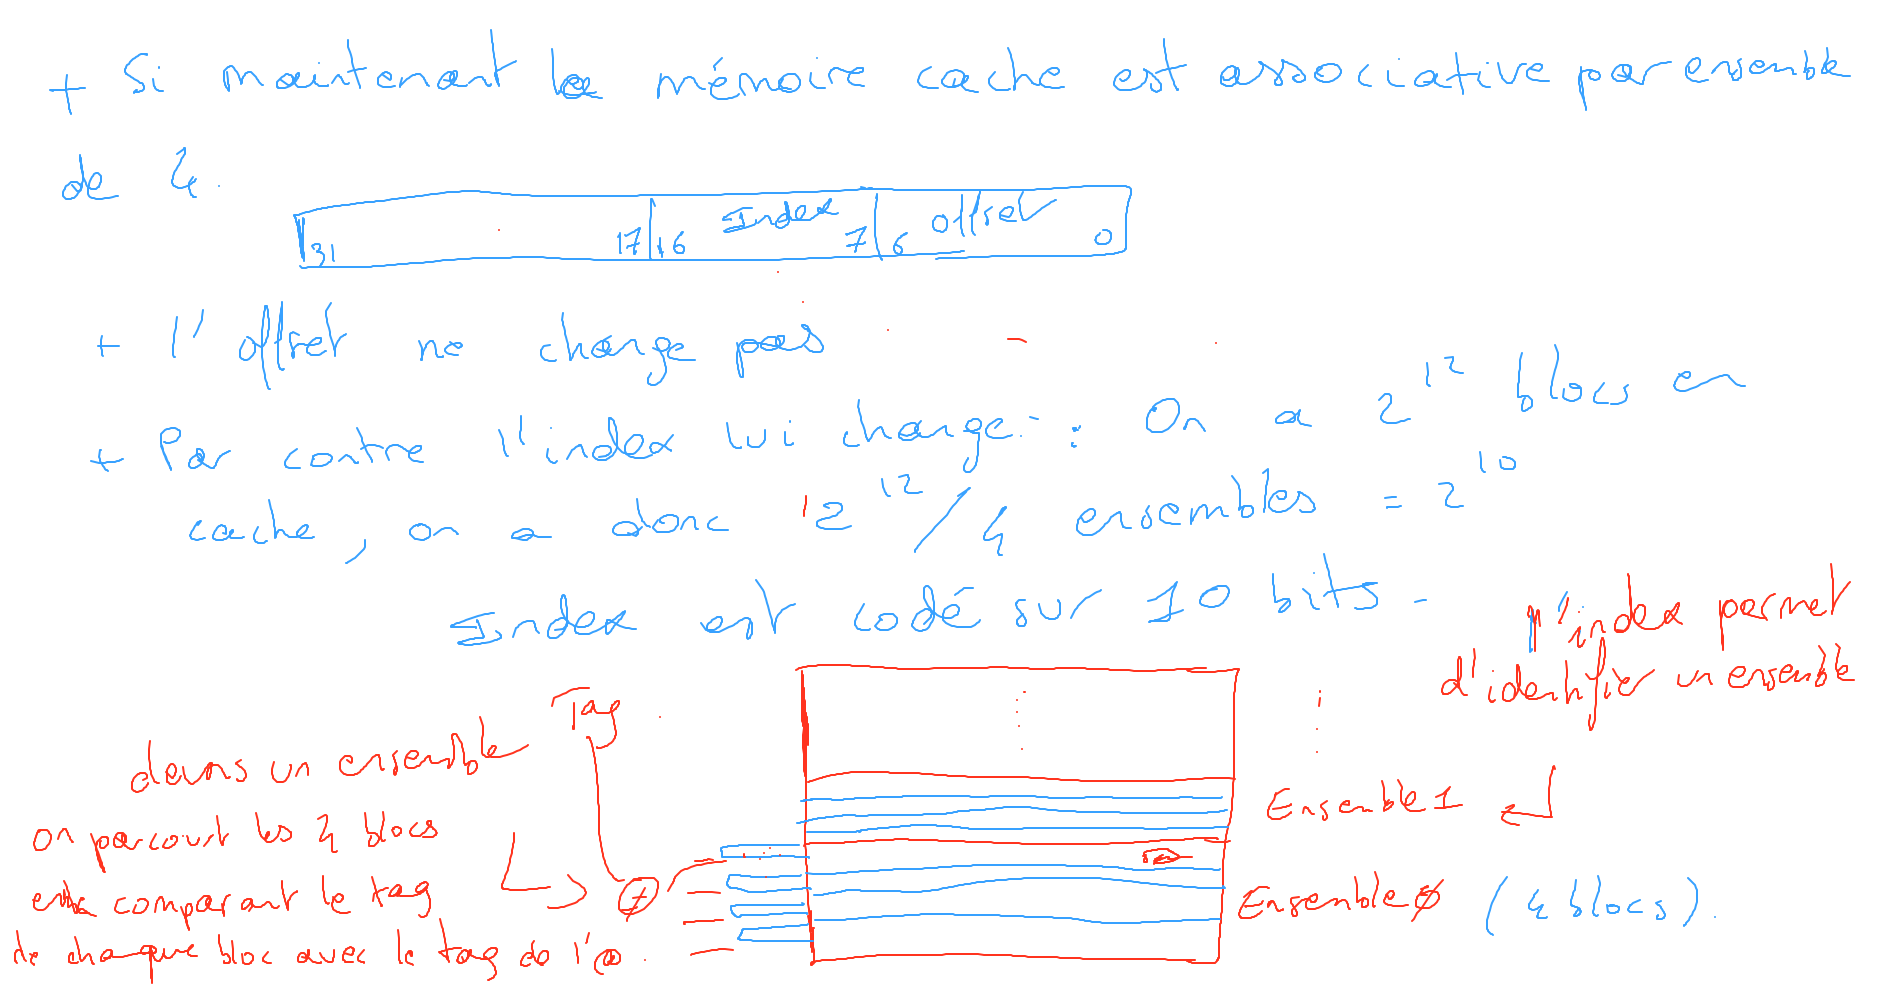 + Si maintenant la mémoire cache est associative par ensemble
de 4.
31 17 16 Index 7 6 offset 0
+ l'offset ne change pas
+ Par contre l'index lui change : On a 2^12 blocs en
cache, on a donc 2^12 / 4 ensembles = 2^10
Index est codé sur 10 bits.
l'index permet
d'identifier un ensemble
Tag
dans un ensemble
on parcourt les 4 blocs
en comparant le tag
de chaque bloc avec le tag de l'@
Ensemble 1
Ensemble 0 (4 blocs).